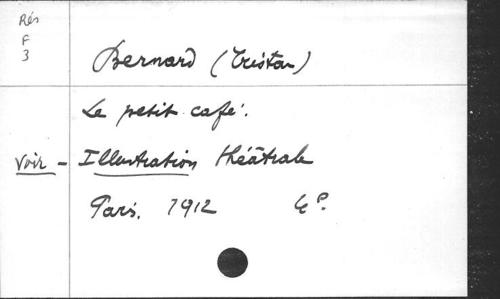 Rés
F
3
Bernard (Tristan)
Le petit café.
Voir - Illustration théâtrale
Paris. 1912 4º.